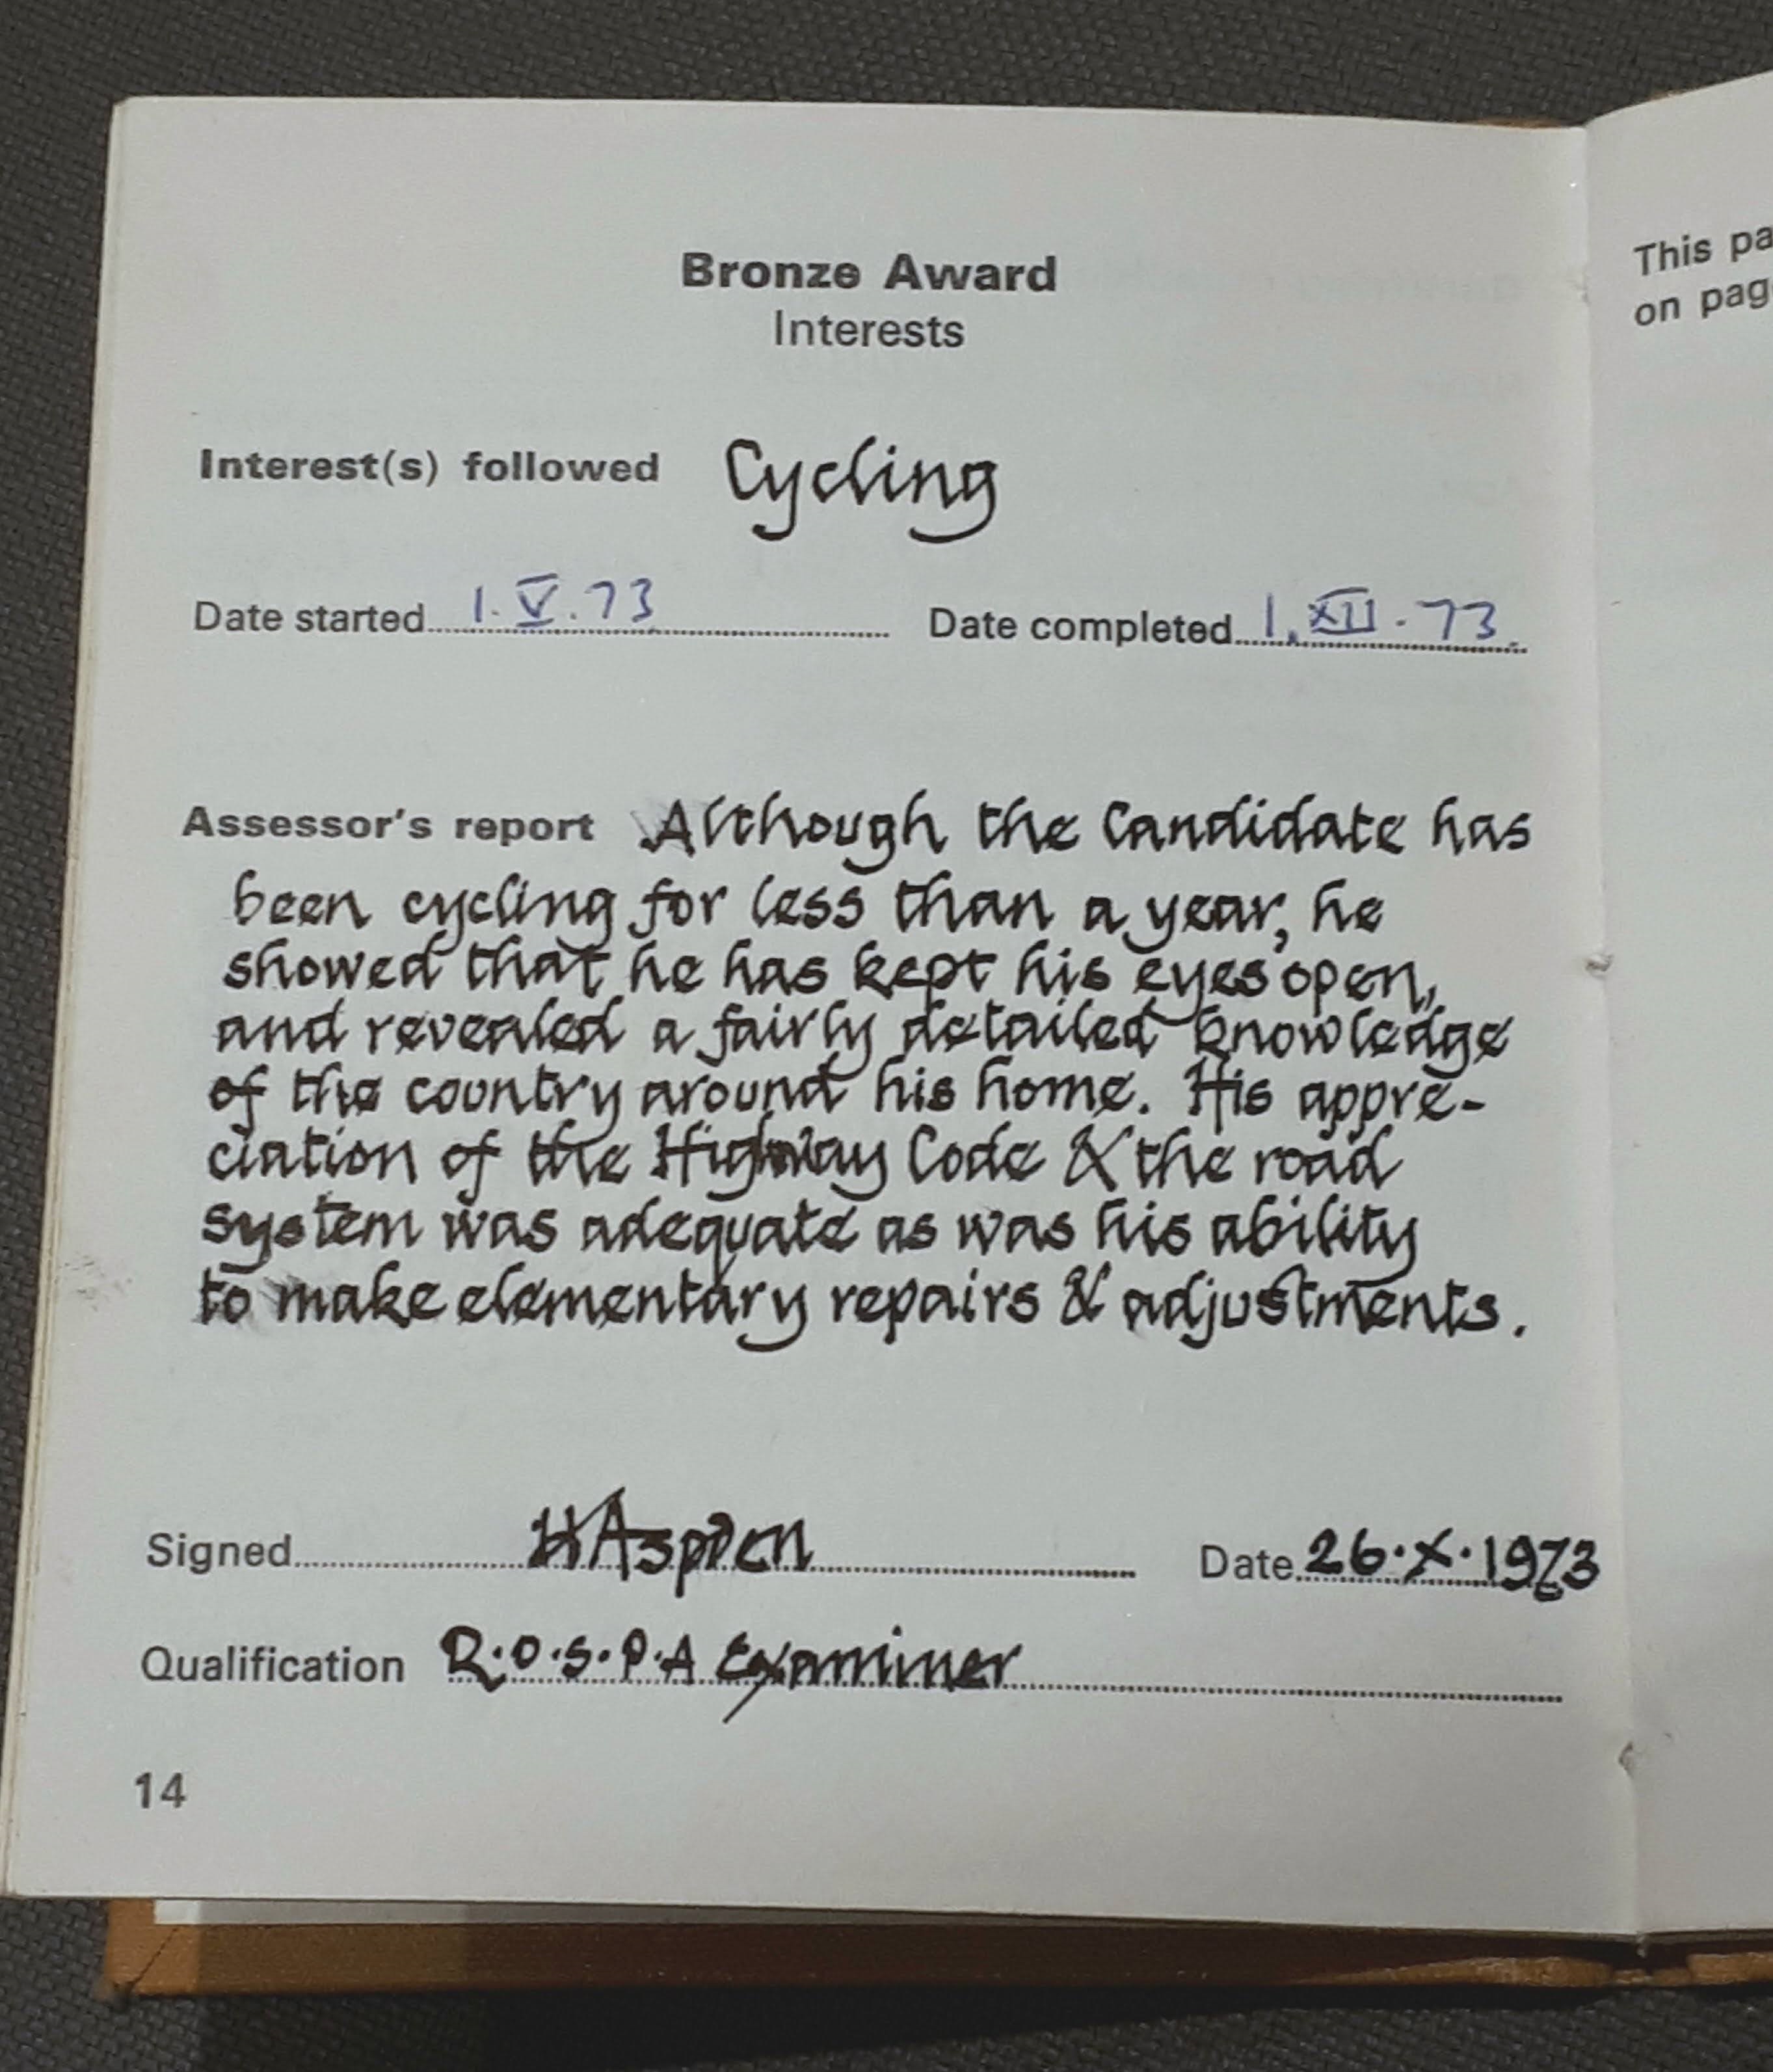 Bronze Award
Interests
This pa
on pag
Interest(s) followed Cycling
Date started 1.V.73 Date completed 1.XII.73.
Assessor's report Although the Candidate has
been cycling for less than a year, he
showed that he has kept his eyes open,
and revealed a fairly detailed knowledge
of the country around his home. His appre-
ciation of the Highway Code & the road
system was adequate as was his ability
to make elementary repairs & adjustments.
Signed HAspden Date 26.X.1973
Qualification R.O.S.P.A Examiner
14